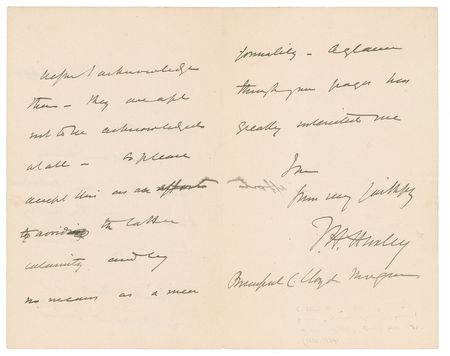 before I acknowledge
them – they are apt
not to be acknowledged
at all – So please
accept this as an effort
to avoiding the latter
calamity and by
no means as a mere
formality – A glance
through your pages has
greatly interested me
I am
yours very faithfully
T.H. Huxley
Principal C. Lloyd Morgan